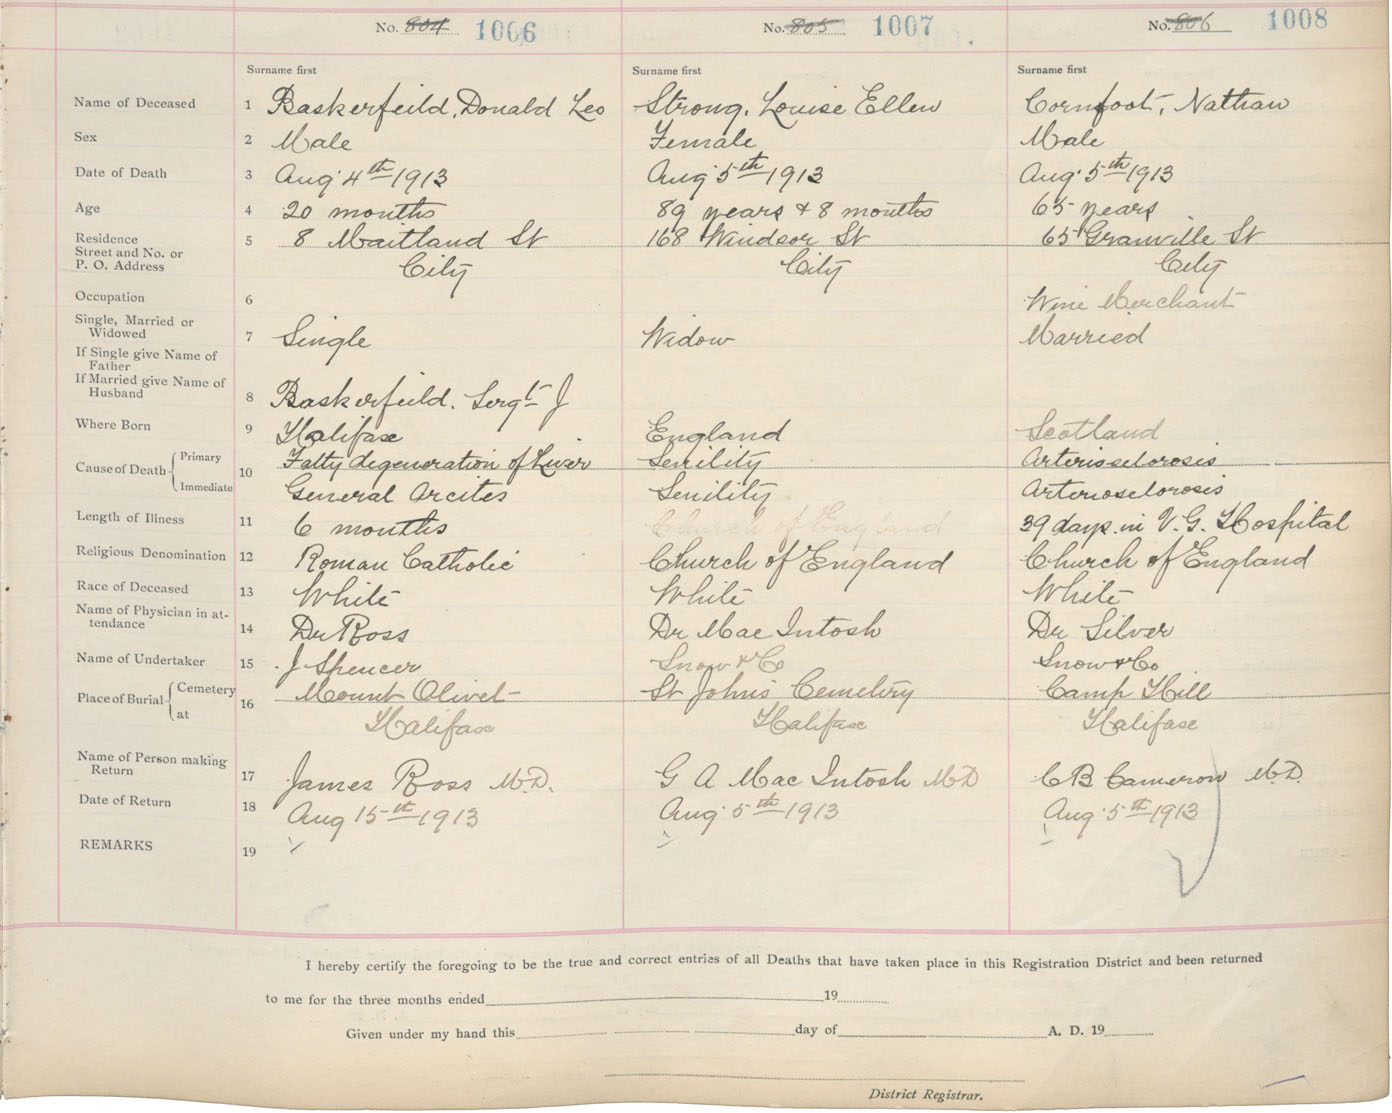 No. 804 1006 No. 805 1007 No. 806 1008
Surname first Surname first Surname first
Name of Deceased 1 Baskerfeild, Donald Leo Strong, Louise Ellen Cornfoot, Nathan
Sex 2 Male Female Male
Date of Death 3 Aug 4th 1913 Aug 5th 1913 Aug 5th 1913
Age 4 20 months 89 years & 8 months 65 years
Residence
Street and No. or
P. O. Address
5 8 Maitland St 168 Windsor St 65 Granville St
City City City
Occupation 6 Wine Merchant
Single, Married or
Widowed
7 Single Widow Married
If Single give Name of
Father
If Married give Name of
Husband
8 Baskerfeild. Sergt J
Where Born 9 Halifax England Scotland
Cause of Death Primary 10 Fatty degeneration of Liver Senility Arteriosclorosis
Immediate General Arcites Senility Arterioselorosis
Length of Illness 11 6 months Church of England 39 days in V. G. Hospital
Religious Denomination 12 Roman Catholic Church of England Church of England
Race of Deceased 13 White White White
Name of Physician in at-
tendance
14 Dr Ross Dr Mac Intosh Dr Silver
Name of Undertaker 15 J Spencer Snow & Co Snow & Co
Place of Burial Cemetery 16 Mount Olivet St Johns Cemetery Camp Hill
at Halifax Halifax Halifax
Name of Person making
Return
17 James Ross M.D. G A Mac Intosh MD C B Cameron M.D.
Date of Return 18 Aug 15th 1913 Aug 5th 1913 Aug 5th 1913
REMARKS 19
I hereby certify the foregoing to be the true and correct entries of all Deaths that have taken place in this Registration District and been returned
to me for the three months ended 19
Given under my hand this day of A. D. 19
District Registrar.